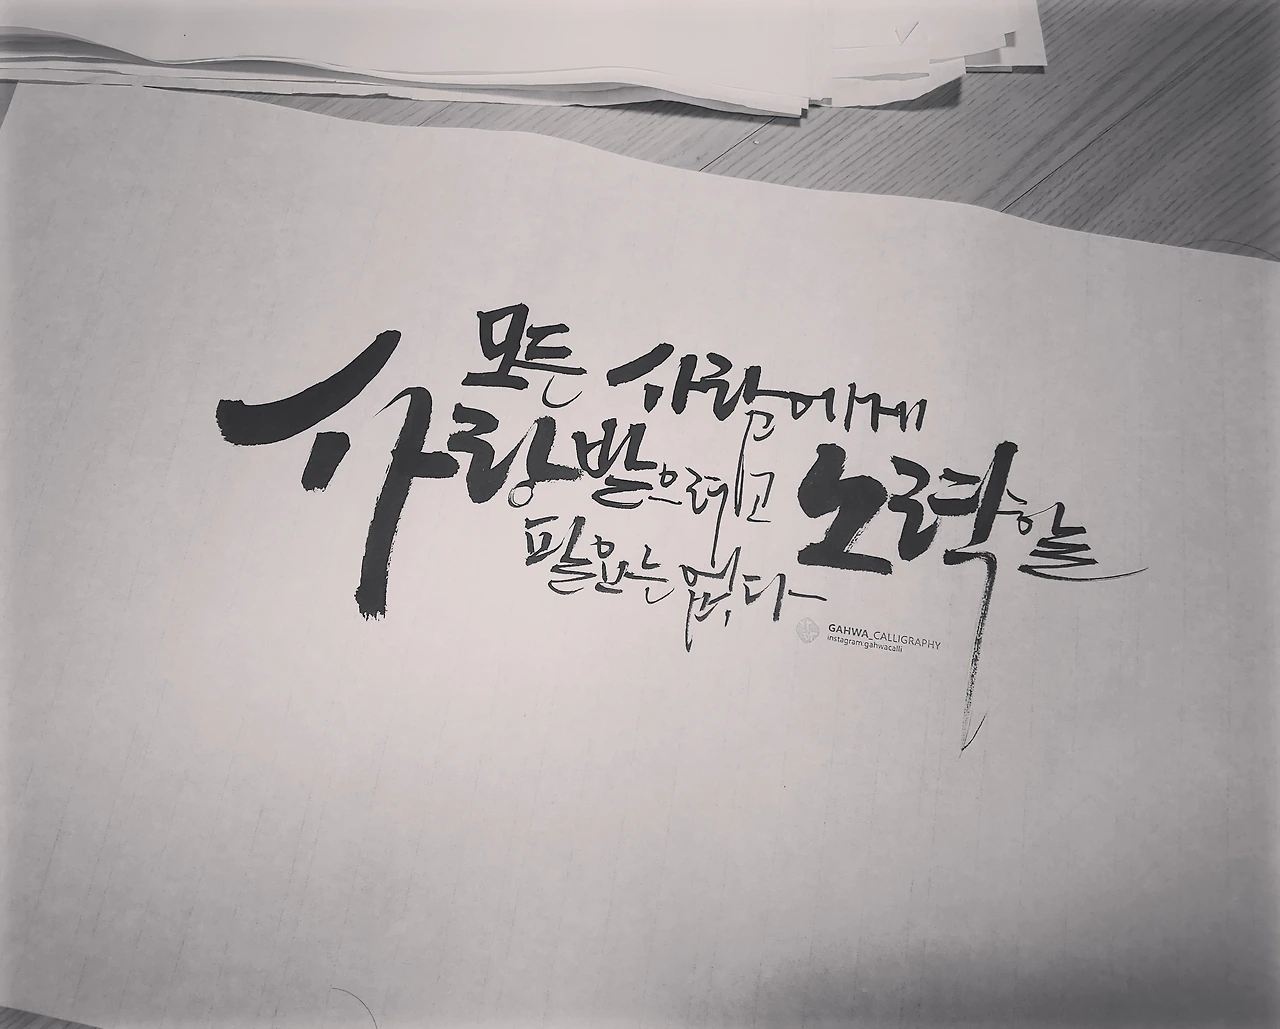 모든 사람에게
사랑받으려고 노력할
필요는 없다
GAHWA_CALLIGRAPHY
instagram:gahwacalli